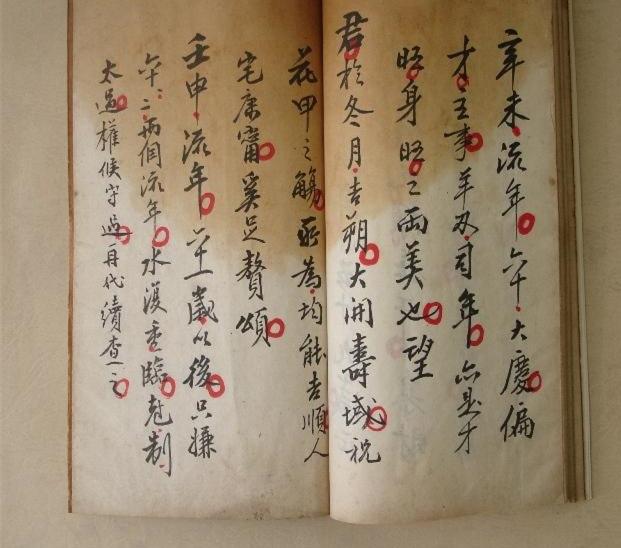 辛未流年六十大慶偏
才主事羊刃司年亦是才
旺身旺之兩美也望
君於冬月吉朔大開壽域祝
花甲之觴所為均能吉順人
宅康甯奚足贅頌
壬申流年歲以後只嫌
六十二兩個流年水复重臨尅制
太過權候守過再代續查之